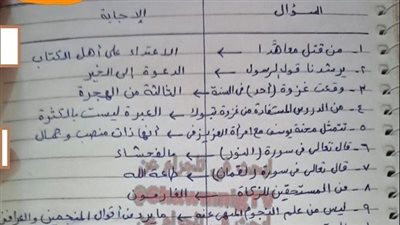 السؤال الإجابة
١- من قتل معاهَدا ← الاعتداء على أهل الكتاب
٢- يرشدنا قول الرسول ← الدعوة إلى الخير
٣- وقعت غزوة (أحد) في السنة ← الثالثة من الهجرة
٤- من الدروس المستفادة من غزوة ← العبرة ليست بالكثرة
٥- تتمثل محنة يوسف مع امرأة العزيز في ← أنها ذات منصب وجمال
٦- قال تعالى في سورة (النور) ← بالفحشاء
٧- قال تعالى في سورة (لقمان) ← طاعة الله
٨- من المستحقين للزكاة ← الغارمون
٩- ليس من علم النجوم المنهى عنه ← ما يرد من أقوال المنجمين والعرافين